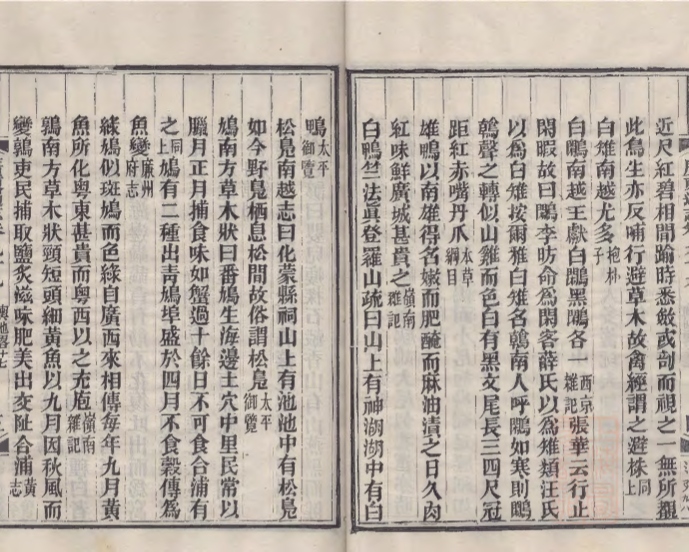 近尺紅碧相間踰時悉斂或剖而視之一無所獲
此鳥生亦反哺行避草木故禽經謂之避株同上
白雉南越尤多抱朴子
白鷴南越王獻白鷴黑鷴各一西京雜記張華云行止
閑暇故曰鷴李昉命爲閑客薛氏以爲雉類汪氏
以爲白雉按爾雅白雉名鶾南人呼鷴如寒則鷴
鶾聲之轉似山雞而色白有黑文尾長三四尺冠
距紅赤嘴丹爪本草綱目
雄鴨以南雄得名嫩而肥醃而麻油漬之日久肉
紅味鮮廣城甚貴之嶺南雜記
白鴨竺法眞登羅山疏曰山上有神湖湖中有白
鴨太平御覽
松鳧南越志曰化蒙縣祠山上有池池中有松鳧
如今野鳧栖息松間故俗謂松鳧太平御覽
鳩南方草木狀曰番鳩生海邊土穴中里民常以
臘月正月捕食味如蟹過十餘日不可食合浦有
之同上鳩有二種出青鳩埠盛於四月不食穀傳爲
魚變廉州府志
綠鳩似斑鳩而色綠自廣西來相傳每年九月黃
魚所化粵東甚貴而粵西以之充庖嶺南雜記
鶉南方草木狀頸短頭細黃魚以九月因秋風而
變鶉吏民捕取鹽炙滋味肥美出交阯合浦黃志